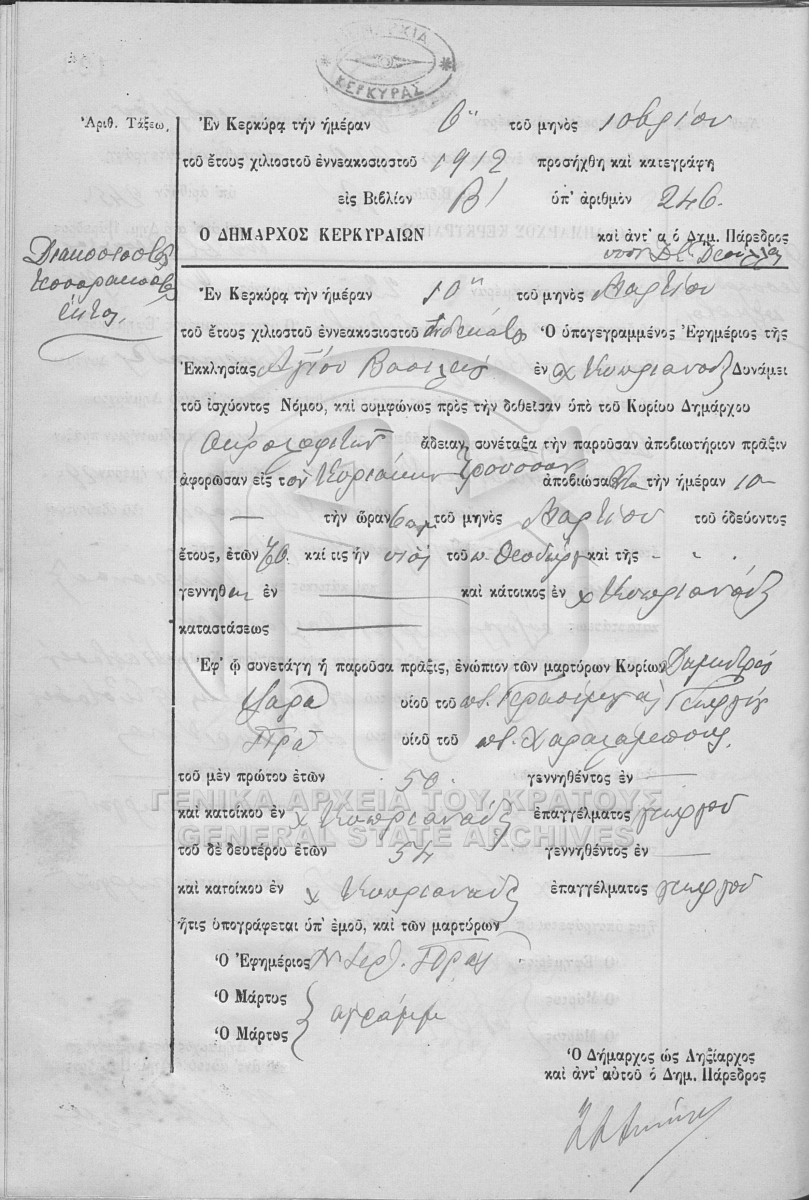 ΚΕΡΚΥΡΑΣ
Ἀριθ. Τάξεω,
Ἐν Κερκύρᾳ τὴν ἡμέραν 6ην τοῦ μηνὸς 10βρίου
τοῦ ἔτους χιλιοστοῦ ἐννεακοσιοστοῦ 1912 προσήχθη καὶ κατεγράφη
εἰς Βιβλίον Β/ ὑπ' ἀριθμὸν 246.
Ο ΔΗΜΑΡΧΟΣ ΚΕΡΚΥΡΑΙΩΝ
καὶ ἀντ' α ὁ Δημ. Πάρεδρος
Διακοσιοστὸς
τεσσαρακοστὸς
ἕκτος.
Ἐν Κερκύρᾳ τὴν ἡμέραν 10ην τοῦ μηνὸς Μαρτίου
τοῦ ἔτους χιλιοστοῦ ἐννεακοσιοστοῦ Ὁ ὑπογεγραμμένος Ἐφημέριος τῆς
Ἐκκλησίας Ἁγίου Βασιλείου ἐν χ Κυπριανάδες Δυνάμει
τοῦ ἰσχύοντος Νόμου, καὶ συμφώνως πρὸς τὴν δοθεῖσαν ὑπὸ τοῦ Κυρίου Δημάρχου
ἄδειαν, συνέταξα τὴν παροῦσαν ἀποβιωτήριον πρᾶξιν
ἀφορῶσαν εἰς τὸν Κυριάκην ἀποβιώσαντα τὴν ἡμέραν 10
— τὴν ὥραν 6 πμ τοῦ μηνὸς Μαρτίου τοῦ ὁδεύοντος
ἔτους, ἐτῶν καί τις ἦν υἱὸς τοῦ π. Θεοδώρου καὶ τῆς - "
γεννηθεὶς ἐν — καὶ κάτοικος ἐν χ Κυπριανάδες
καταστάσεως —
Ἐφ' ᾧ συνετάγη ἡ παροῦσα πρᾶξις, ἐνώπιον τῶν μαρτύρων Κυρίων Δημητρίου
Ψαρᾶ υἱοῦ τοῦ ποτ. Γερασίμου καὶ Γεωργίου
Πρᾶ υἱοῦ τοῦ ποτ. Χαραλάμπους.
τοῦ μὲν πρώτου ἐτῶν 50. γεννηθέντος ἐν —
καὶ κατοίκου ἐν χ Κυπριανάδες ἐπαγγέλματος γεωργοῦ
τοῦ δὲ δευτέρου ἐτῶν 54 γεννηθέντος ἐν —
καὶ κατοίκου ἐν χ Κυπριανάδες ἐπαγγέλματος γεωργοῦ
ἥτις ὑπογράφεται ὑπ' ἐμοῦ, καὶ τῶν μαρτύρων
Ὁ Ἐφημέριος Ν Ἱερ. Πρᾶς
Ὁ Μάρτυς
Ὁ Μάρτυς
ἀγράμμ
Ὁ Δήμαρχος ὡς Ληξίαρχος
καὶ ἀντ' αὐτοῦ ὁ Δημ. Πάρεδρος
ΓΕΝΙΚΑ ΑΡΧΕΙΑ ΤΟΥ ΚΡΑΤΟΥΣ
GENERAL STATE ARCHIVES